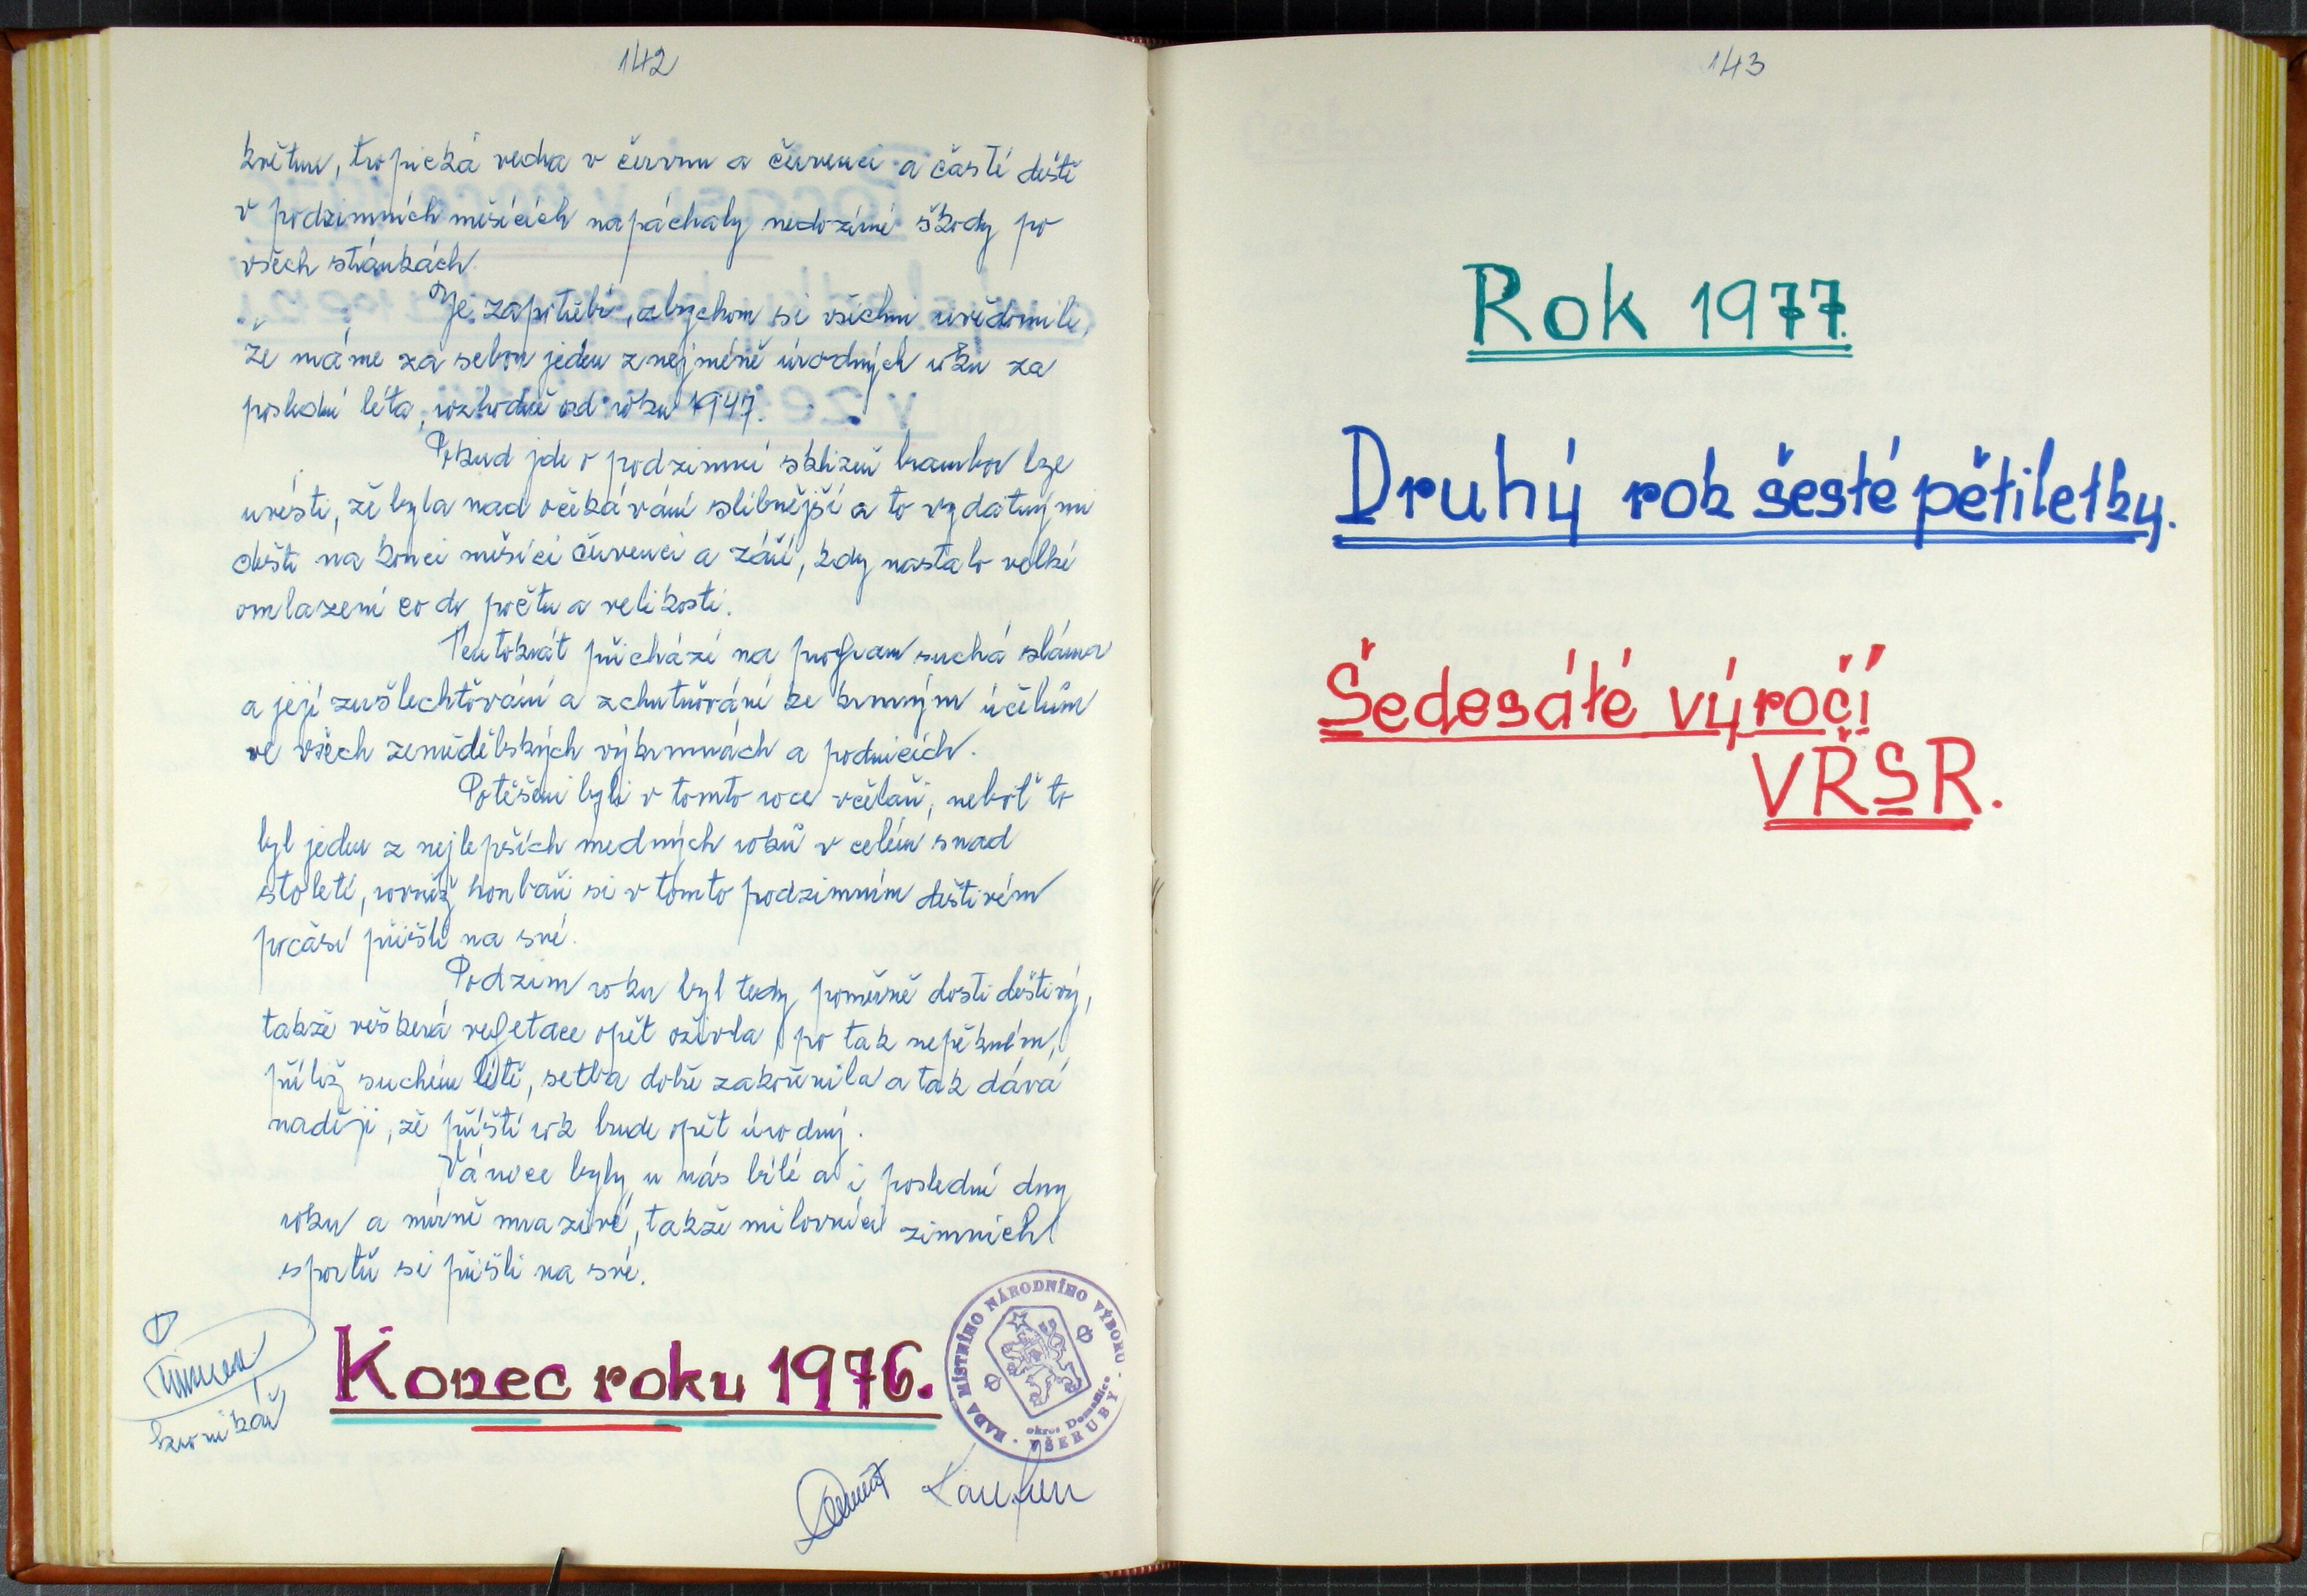 142
květnu, tropická vedra v červnu a červenci a časté deště
v podzimních měsících napáchaly nedozírné škody po
všech stránkách.
Je zapotřebí, abychom si všichni uvědomili,
že máme za sebou jeden z nejméně úrodných roku za
poslední léta, rozhodně od roku 1947.
Pokud jde o podzimní sklizeň brambor lze
uvésti, že byla nad očekávání slibnější a to vydatnými
dešti na konci měsíci červenci a září, kdy nastalo velké
omlazení co do počtu a velikosti.
Tentokrát přichází na program suchá sláma
a její zušlechťování a zchutňování ke krmným účelům
ve všech zemědělských výkrmnách a podnicích.
Potěšeni byli v tomto roce včelaři, neboť to
byl jeden z nejlepších medných roků v celém snad
století, rovněž houbaři si v tomto podzimním deštivém
počasí přišli na své.
Podzim roku byl tedy poměrně dosti deštivý,
takže veškerá vegetace opět oživla po tak nepěkném,
příliž suchém létě, setba dobře zakořenila a tak dává
naději, že příští rok bude opět úrodný.
Vánoce byly u nás bílé a i poslední dny
roku a mírně mrazivé, takže milovníci zimních
sportů si přišli na své.
Konec roku 1976.
kronikář
RADA MÍSTNÍHO NÁRODNÍHO VÝBORU
okres Domažlice
VŠERUBY
143
Rok 1977.
Druhý rok šesté pětiletky.
Šedesáté výročí
VŘSR.